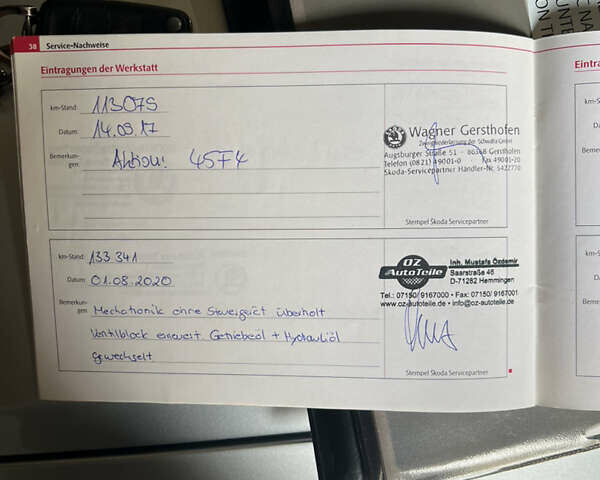 38 Service-Nachweise
Eintragungen der Werkstatt
km-Stand: 113075
Datum: 14.09.17
Bemerkun-
gen: Aktion! 45F4
Wagner Gersthofen
Zweigniederlassung der Schwaba GmbH
Augsburger Straße 51 · 86368 Gersthofen
Telefon (0821) 49001-0 Fax 49001-20
Skoda-Servicepartner Händler-Nr. 5422770
Stempel Škoda Servicepartner
km-Stand: 133 341
Datum: 01.08.2020
Bemerkun-
gen: Mechatronik ohne Steuergerät überholt
Ventilblock erneuert Getriebeöl + Hydrauliköl
gewechselt
OZ
AutoTeile
Inh. Mustafa Özdemir
Saarstraße 46
D-71282 Hemmingen
Tel.: 07150/ 9167000 • Fax: 07150/ 9167001
www.oz-autoteile.de • info@oz-autoteile.de
Stempel Škoda Servicepartner
Eintra
km-Stand
Datum
Bemerkun-
gen
km-Stand
Datum
Bemerkun-
gen